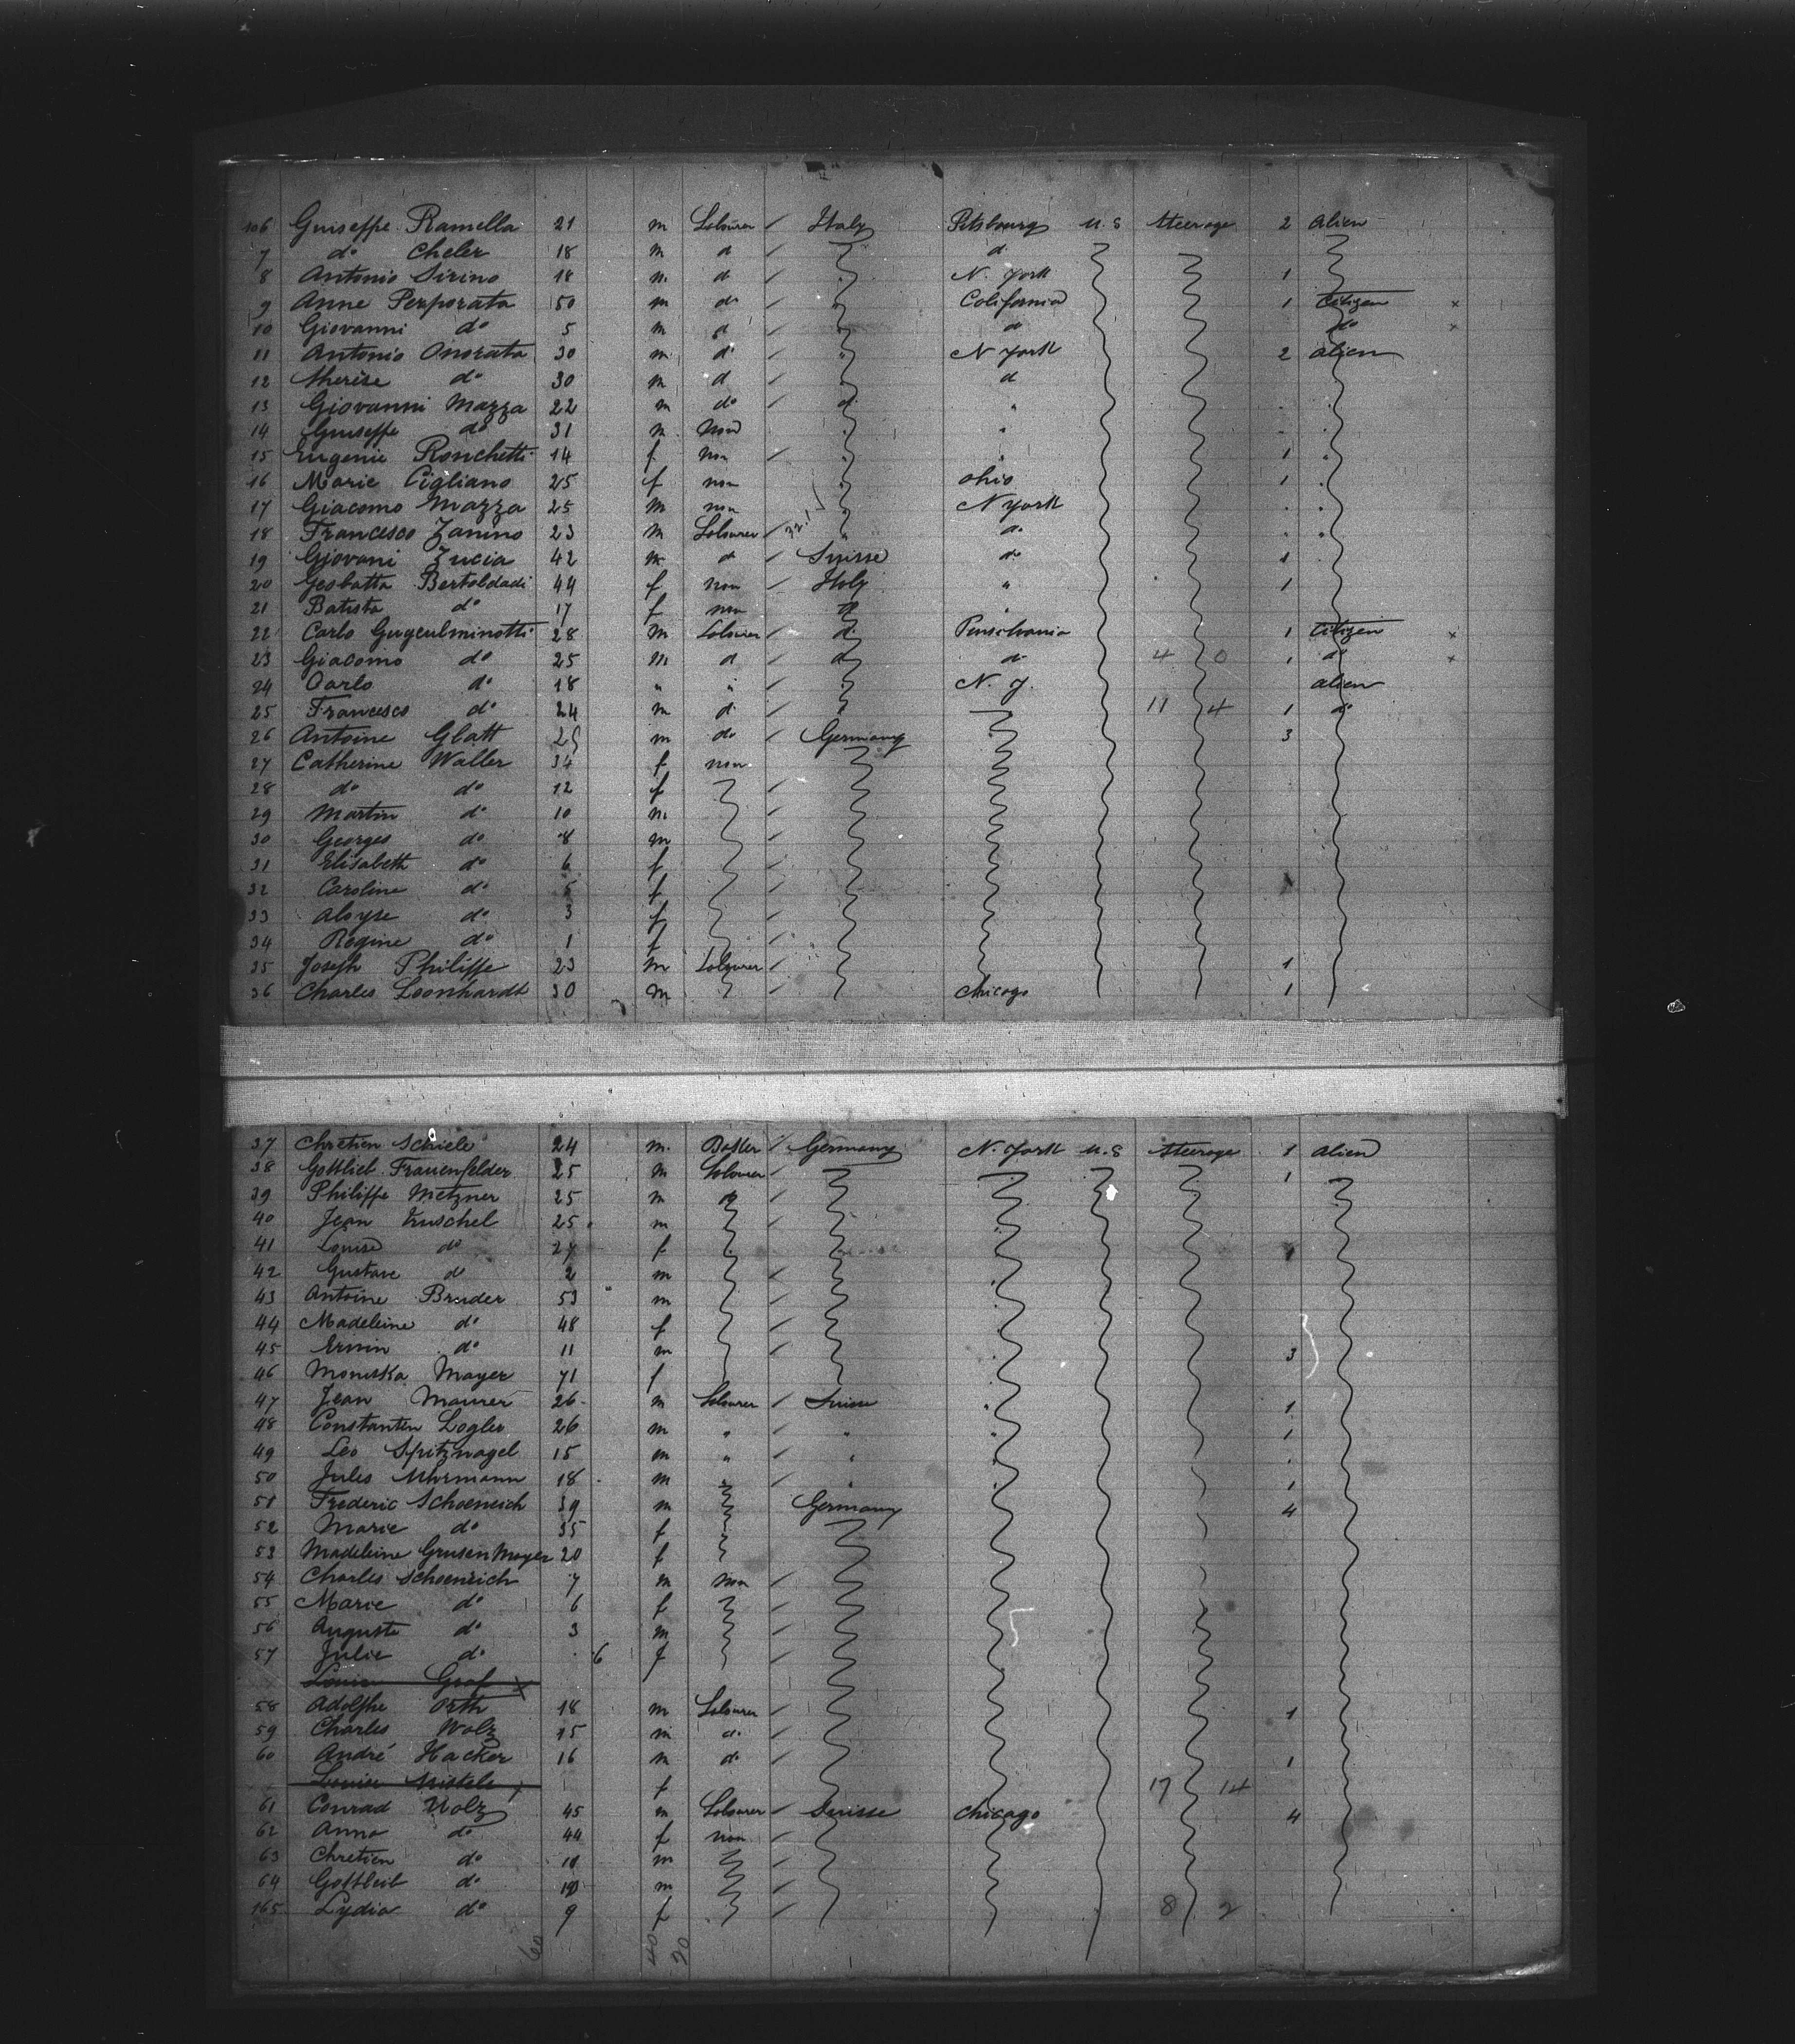 106 Guiseppe Ramella 21 m Labourer Italy Pitsbourg U.S Steerage 2 alien
7 do Cheler 18 m d d
8 Antonio Sirino 18 m d N. York 1
9 Anne Perporata 50 m do California 1 Citizen x
10 Giovanni do 5 m d d do x
11 Antonio Onorata 30 m d " N York 2 alien
12 therese do 30 m d " d
13 Giovanni Mazza 22 m do d "
14 Guiseppe do 31 m non "
15 Eugenie Ronchetti 14 f non " 1
16 Marie Cigliano 25 f non ohio 1
17 Giacomo Mazza 25 m non N York
18 Francesco Zanino 23 m Labourer do
19 Giovani Zucia 42 m d Suisse do 1
20 Gesbatta Bertoldadi 44 f non Italy " 1
21 Batista do 17 f non d "
22 Carlo 28 m Labourer d Penselvania 1 Citizen x
23 Giacomo do 25 m d d d 4 0 1 d x
24 Carlo do 18 " " N. Y. alien
25 Francesco do 24 m d 11 4 1 do
26 Antoine Glatt 25 m do Germany 3
27 Catherine Waller 34 f non
28 do do 12 f
29 Martin do 10 m
30 Georges do 8 m
31 Elisabeth do 6 f
32 Caroline do 5 f
33 Aloyse do 3 f
34 Regine do 1 f
35 Joseph Philippe 23 m Labourer 1
36 Charles Leonhardt 30 m Chicago 1
37 Chretien Schiele 24 m. Germany N. York U.S Steerage 1 alien
38 Gottlieb Frauenfelder 25 m Labourer 1
39 Philippe Metzner 25 m d
40 Jean Kuschel 25 m
41 Louise do 27 f
42 Gustave d 2 m
43 Antoine Bruder 53 m
44 Madeleine do 48 f
45 Erwin do 11 m 3
46 Moniska Mayer 71 f
47 Jean Maurer 26 m Labourer Suisse 1
48 Constanten Logler 26 m " " 1
49 Leo Spitznagel 15 m " "
50 Jules Uhrmann 18 m " 1
51 Frederic Schoeneich 39 m Germany 4
52 Marie do 35 f
53 Madeleine Grusenmeyer 20 f
54 Charles Schoeneich 7 m non
55 Marie do 6 f
56 Auguste do 3 m
57 Julie do 6 f
Louise Graf x
58 Adolphe Orth 18 m Labourer 1
59 Charles Wolz 15 m do
60 André Hacker 16 m do 1
Louise f 17 14
61 Conrad Wolz 45 m Labourer Suisse Chicago 4
62 Anna do 44 f non
63 Chretien do 11 m
64 Gottleib do 10 m
165 Lydia do 9 f 8 2
60 40 20